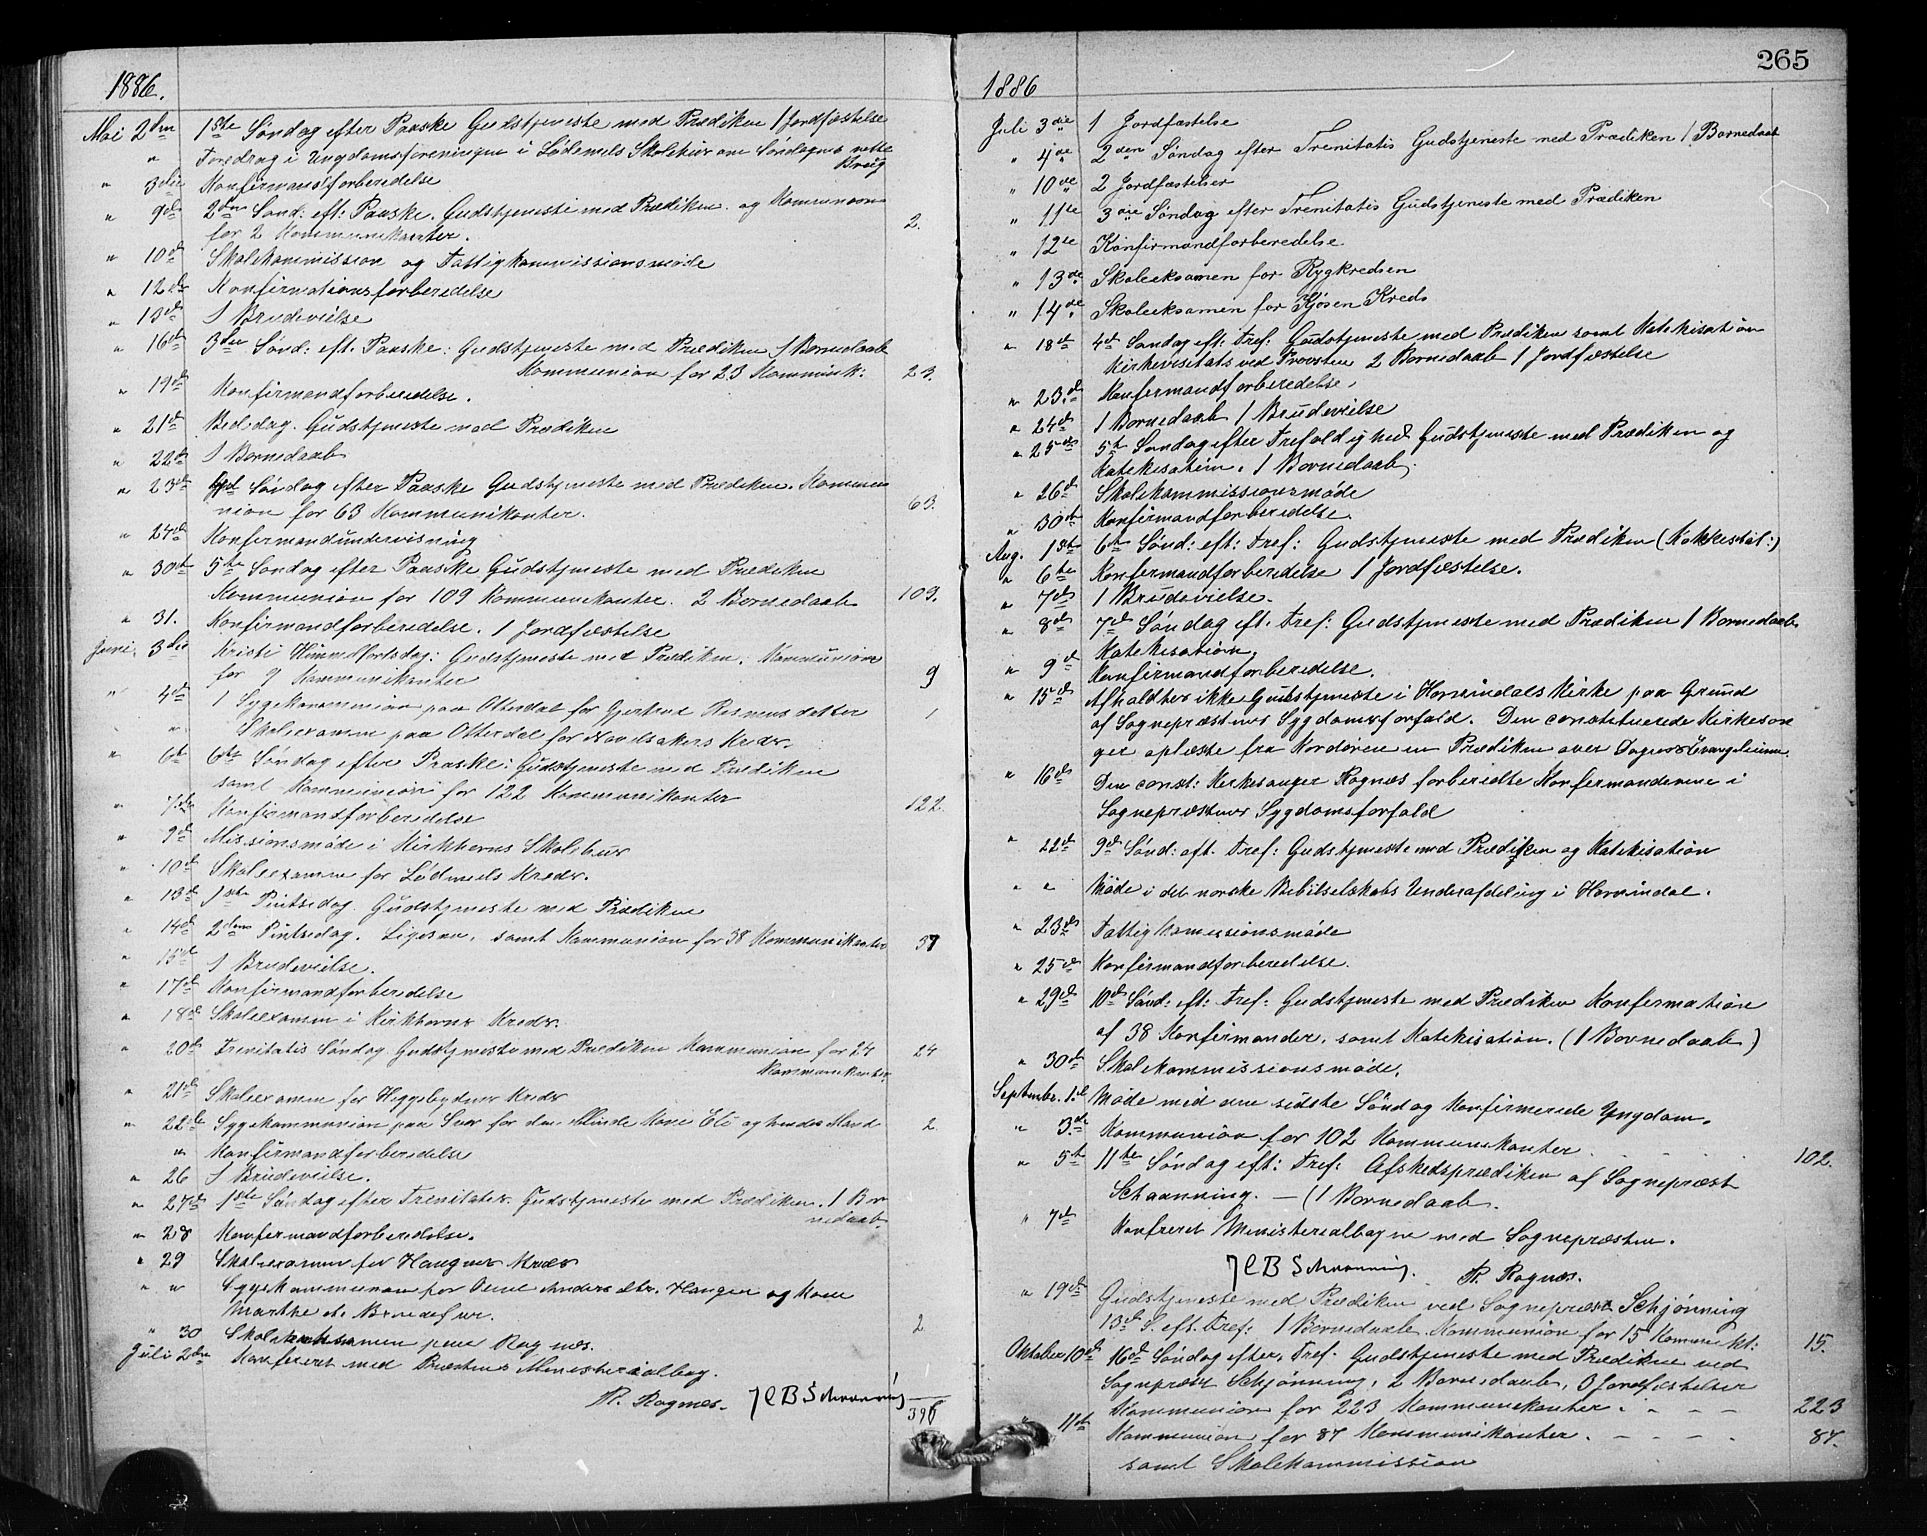 1886.
Mai 2den 1ste Søndag efter Paaske Gudstjeneste med Prædiken 1 Jordfæstelse
" Foredrag i Ungdomsforeningen i Lødemels Skolehus om Søndagens rette
Brug
" 3die Konfirmandforberedelse
" 9de 2den Sønd: eft: Paaske. Gudstjeneste med Prædiken og Kommunion
for 2 Kommunikanter. 2.
" 10de Skolekommission og Fattigkommissionsmøde
" 12de Konfirmationsforberedelse
" 13de 1 Brudevielse
" 16de 3die Sønd: eft. Paaske: Gudstjeneste med Prædiken 1 Barnedaab
Kommunion for 23 Kommunik: 23.
" 19de Konfirmandforberedelse.
" 21de Bededag. Gudstjeneste med Prædiken
" 22de 1 Barnedaab
" 23de 4de Søndag efter Paaske Gudstjeneste med Prædiken. Kommu
nion for 63 Kommunikanter. 63.
" 24de Konfirmandundervisning
" 30te 5te Søndag efter Paaske Gudstjeneste med Prædiken
Kommunion for 109 Kommunikanter. 2 Barnedaab 109.
" 31. Konfirmandforberedelse. 1 Jordfæstelse
Juni. 3die Kristi Himmelfartsdag: Gudstjeneste med Prædiken. Kommunion
for 9 Kommunikanter 9
" 4de 1 Sygekommunion paa Otterdal for Gjertrud Rasmusdatter 1
" " Skoleexamen paa Otterdal for Navelsakers Kreds.
" 6te 6te Søndag efter Paaske: Gudstjeneste med Prædiken
samt Kommunion for 122 Kommunikanter 122.
" 7de Konfirmandforberedelse
" 9de Missionsmøde i Kirkhorns Skolehus
" 10de Skoleexamen for Lødmels Kreds.
" 13de 1ste Pintsedag Gudstjeneste med Prædiken
" 14de 2den Pintsedag. Ligesaa, samt Kommunion for 38 Kommunikanter 38
" 15de 1 Brudevielse.
" 17de Konfirmandforberedelse
" 18de Skoleexamen i Kirkhorns Kreds.
" 20de Trenitatis Søndag Gudstjeneste med Prædiken Kommunion for 24 24
Kommunikanter.
" 21de Skoleexamen for Heggebydnes Kreds
" 22de Sygekommunion paa Svor for den blinde Kone Eli og hendes Mand 2.
" Konfirmandforberedelse
" 26 1 Brudevielse.
" 27de 1ste Søndag efter Trenitatis. Gudstjeneste med Prædiken. 1 Bar
nedaab.
" 28 Konfirmandforberedelse.
" 29 Skoleexamen for Haugnes Kreds
" " Sygekommunion for Anders Haugen og Kone
Marthe 2
" 30 Skoleeksamen paa Rognes.
Juli 2den Konfereret med Præstens Ministerialbog.
R. Rognes. JCB Schaanning
396

265
1886
Juli 3die 1 Jordfæstelse
" 4de 2den Søndag efter Trenitatis Gudstjeneste med Prædiken 1 Barnedaab
" 10de 2 Jordfæstelser
" 11te 3die Søndag efter Trenitatis Gudstjeneste med Prædiken
" 12te Konfirmandforberedelse
" 13de Skoleeksamen for Rygkredsen
" 14de Skoleeksamen for Kjøsen Kreds
" 18de 4de Søndag eft: Tref: Gudstjeneste med Prædiken samt Katekisation
Kirkevisitats ved Provsten 2 Barnedaab 1 Jordfæstelse
" 23de Konfirmandforberedelse.
" 24de 1 Barnedaab 1 Brudevielse
" 25de 5te Søndag efter Trefoldighed Gudstjeneste med Prædiken og
Katekisation. 1 Barnedaab.
" 26de Skolekommissionsmøde
" 30te Konfirmandforberedelse.
Aug. 1ste 6te Sønd: eft: Tref: Gudstjeneste med Prædiken (Kakkestøl:)
" 6te Konfirmandforberedelse 1 Jordfæstelse.
" 7de 1 Brudevielse.
" 8de 7de Søndag eft. Tref: Gudstjeneste med Prædiken 1 Barnedaab.
Katekisation.
" 9de Konfirmandforberedelse.
" 15de Afholdtes ikke Gudstjeneste i Hornindals Kirke paa Grund
af Sognepræstens Sygdomsforfald. Den constituerede Kirkesan
ger oplæste fra Kordøren en Prædiken over Dagens Evangelium.
" 16de Den const: Kirkesanger Rognæs forberedte Konfirmanderne i
Sognepræstens Sygdomsforfald
" 22de 9de Sønd: eft. Tref: Gudstjeneste med Prædiken og Katekisation
" " Møde i det norske Bibelselskabs Underafdeling i Hornindal.
" 23de Fattigkomissionsmøde
" 25de Konfirmandforberedelse.
" 29de 10de Sønd: eft: Tref: Gudstjeneste med Prædiken Konfirmation
af 38 Konfirmander, samt Katekisation. (1 Barnedaab)
" 30te Skolekommissionsmøde.
September. 1ste Møde med den sidste Søndag Konfirmerede Yngdom.
" 3de Kommunion for 102 Kommunikanter. . . . 102.
" 5te 11te Søndag eft: Tref: Afskedsprædiken af Sognepræst
Schaanning. — (1 Barnedaab.
" 7de Konfereret Ministerialbogne med Sognepræsten.
JCB Schaanning. R. Rognæs.
" 19de Gudstjeneste med Prædiken ved Sognepræst Schjønning
13de S. eft. Tref: 1 Barnedaab Kommunion for 15 Kommunikt: 15.
Oktober 10de 16de Søndag efter. Tref. Gudstjeneste med Prædiken ved
Sognepræst Schjønning, 2 Barnedaab, 3 Jordfæstelser
Kommunion for 223 Kommunikanter. – – – 223
" 11te Kommunion for 87 Kommunikanter. – – – – 87.
samt Skolekommission